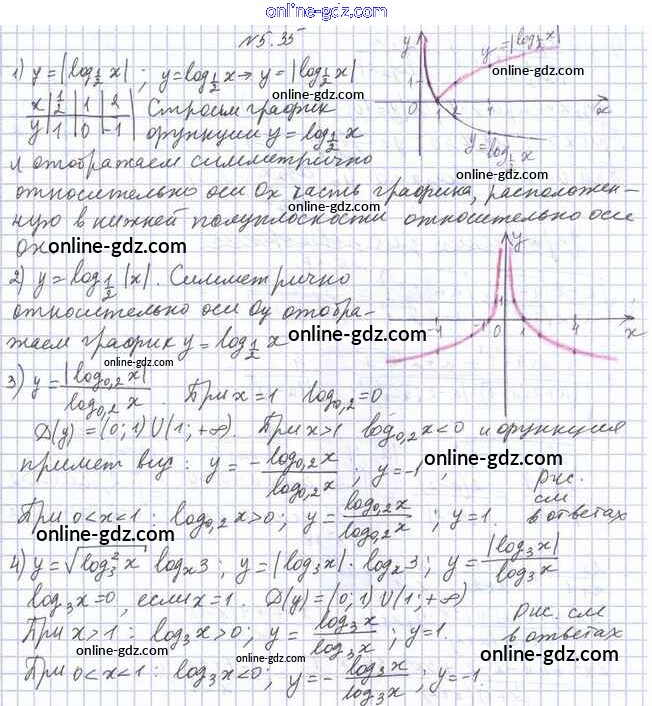 online-gdz.com
№5.35
1) y = |log_{1/2} x| ; y = log_{1/2} x → y = |log_{1/2} x|
x | 1/2 | 1 | 2 | Строим график
y | 1 | 0 | -1 | функции y = log_{1/2} x
и отображаем симметрично
относительно оси Ox часть графика, расположен-
ную в нижней полуплоскости относительно оси
Ox online-gdz.com
y
y = |log_{1/2} x|
1
0
x
y = log_{1/2} x
online-gdz.com
2) y = log_{1/2} |x|. Симметрично
относительно оси Oy отобра-
жаем график y = log_{1/2} x
online-gdz.com
online-gdz.com
y
1
-1 0 1 4 x
online-gdz.com
3) y = |log_{0,2} x| / log_{0,2} x . При x = 1 log_{0,2} = 0
D(y) = (0; 1) U (1; +∞). При x > 1 log_{0,2} x < 0 и функция
примет вид: y = - log_{0,2} x / log_{0,2} x ; y = -1 ;
online-gdz.com
При 0 < x < 1 : log_{0,2} x > 0 ; y = log_{0,2} x / log_{0,2} x ; y = 1.
Рис.
см
в ответах
online-gdz.com
4) y = √(log_3^2 x) log_x 3 ; y = |log_3 x| · log_x 3 ; y = |log_3 x| / log_3 x
log_3 x = 0, если x = 1. D(y) = (0; 1) U (1; +∞)
При x > 1 : log_3 x > 0 ; y = log_3 x / log_3 x ; y = 1.
Рис. см
в ответах
При 0 < x < 1 : log_3 x < 0 ; y = - log_3 x / log_3 x ; y = -1.
online-gdz.com
online-gdz.com
online-gdz.com